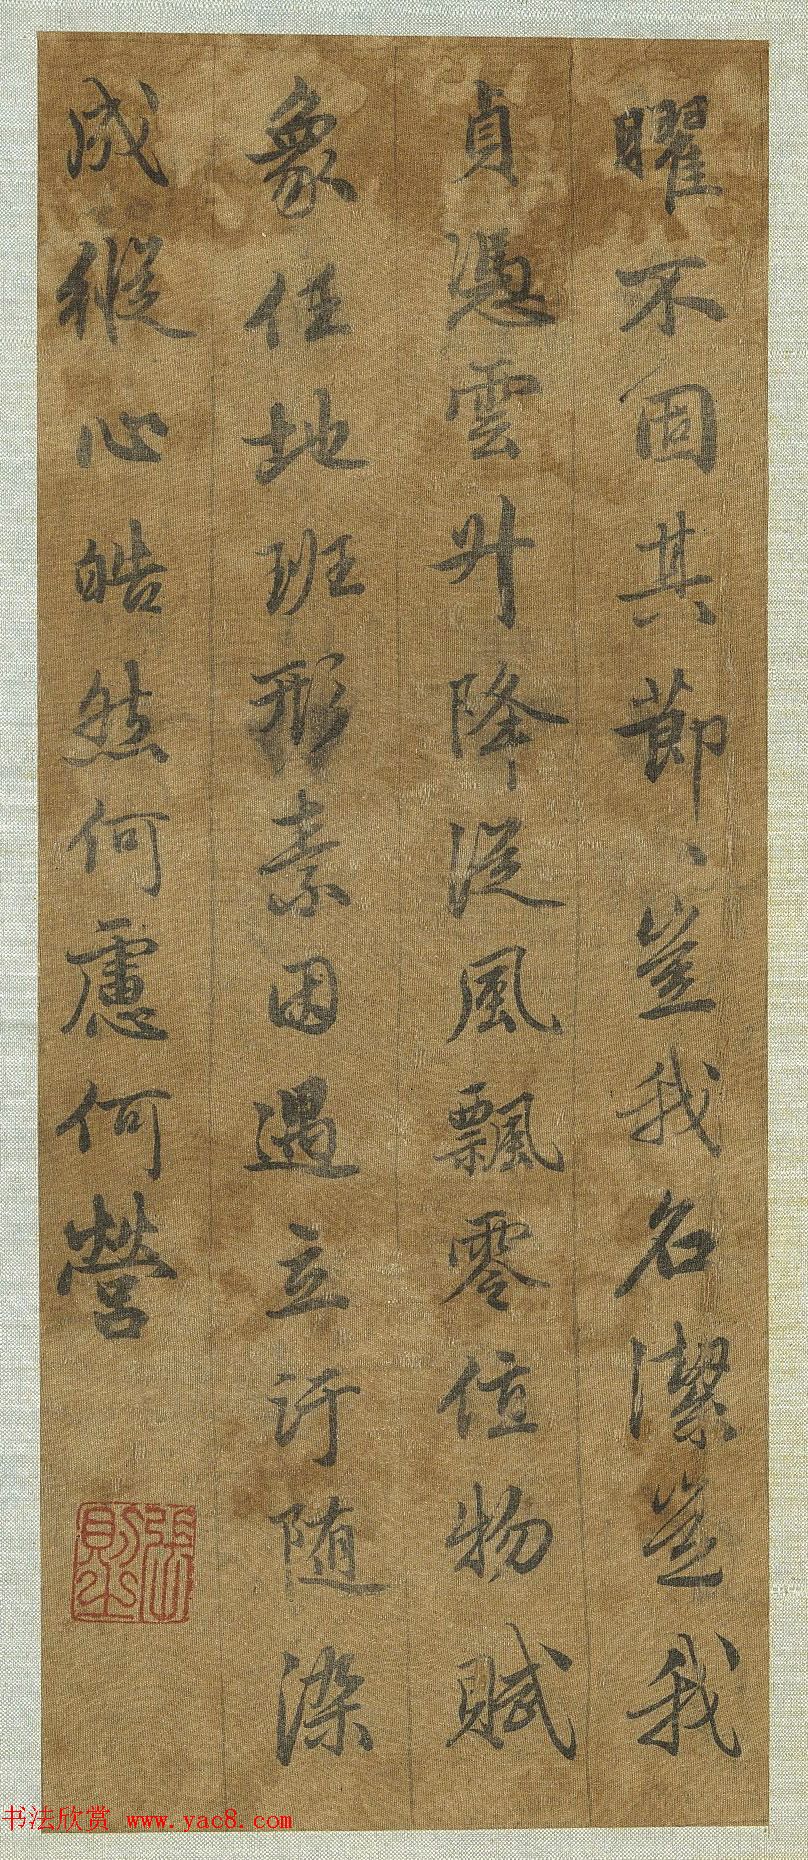 曜不固其節、豈我名潔豈我
貞憑雲升降從風飄零值物賦
象任地班形素因遇立汙隨染
成縱心皓然何慮何營
書法欣賞 www.yac8.com